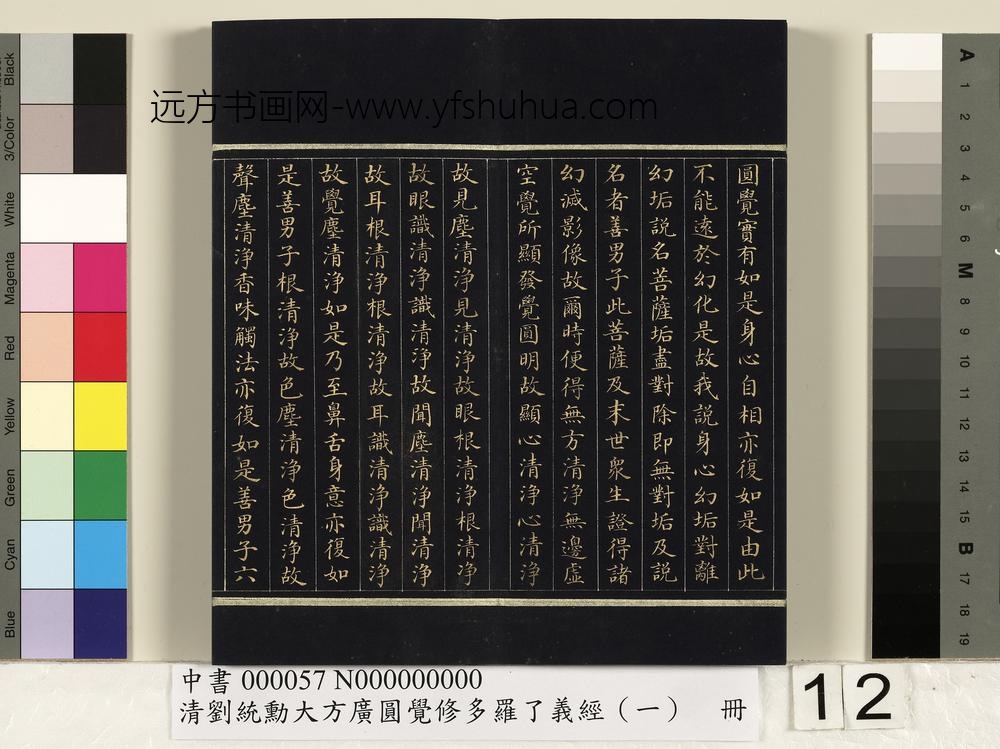 远方书画网-www.yfshuhua.com
圓覺實有如是身心自相亦復如是由此
不能遠於幻化是故我說身心幻垢對離
幻垢說名菩薩垢盡對除即無對垢及說
名者善男子此菩薩及末世衆生證得諸
幻滅影像故爾時便得無方清淨無邊虛
空覺所顯發覺圓明故顯心清淨心清淨
故見塵清淨見清淨故眼根清淨根清淨
故眼識清淨識清淨故聞塵清淨聞清淨
故耳根清淨根清淨故耳識清淨識清淨
故覺塵清淨如是乃至鼻舌身意亦復如
是善男子根清淨故色塵清淨色清淨故
聲塵清淨香味觸法亦復如是善男子六
中書 000057 N000000000
清劉統勳大方廣圓覺修多羅了義經（一） 冊
12
Black
3/Color
White
Magenta
Red
Yellow
Green
Cyan
Blue
A
1
2
3
4
5
6
M
8
9
10
11
12
13
14
15
B
17
18
19